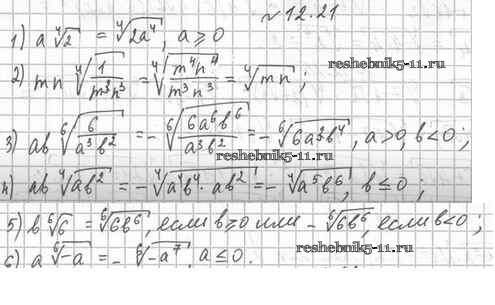 №12.21
1) a ∜2 = ∜(2a⁴), a ≥ 0
2) mn ∜(1/(m³n³)) = ∜(m⁴n⁴/(m³n³)) = ∜(mn);
reshebnik5-11.ru
3) ab ⁶√(6/(a³b²)) = - ⁶√(6a⁶b⁶/(a³b²)) = - ⁶√(6a³b⁴), a>0, b<0;
reshebnik5-11.ru
4) ab ∜(ab²) = - ∜(a⁴b⁴ · ab²) = - ∜(a⁵b⁶), b ≤ 0;
5) b ⁶√6 = ⁶√(6b⁶), если b ≥ 0 или - ⁶√(6b⁶), если b<0;
6) a ⁶√(-a) = - ⁶√(-a⁷), a ≤ 0.
reshebnik5-11.ru